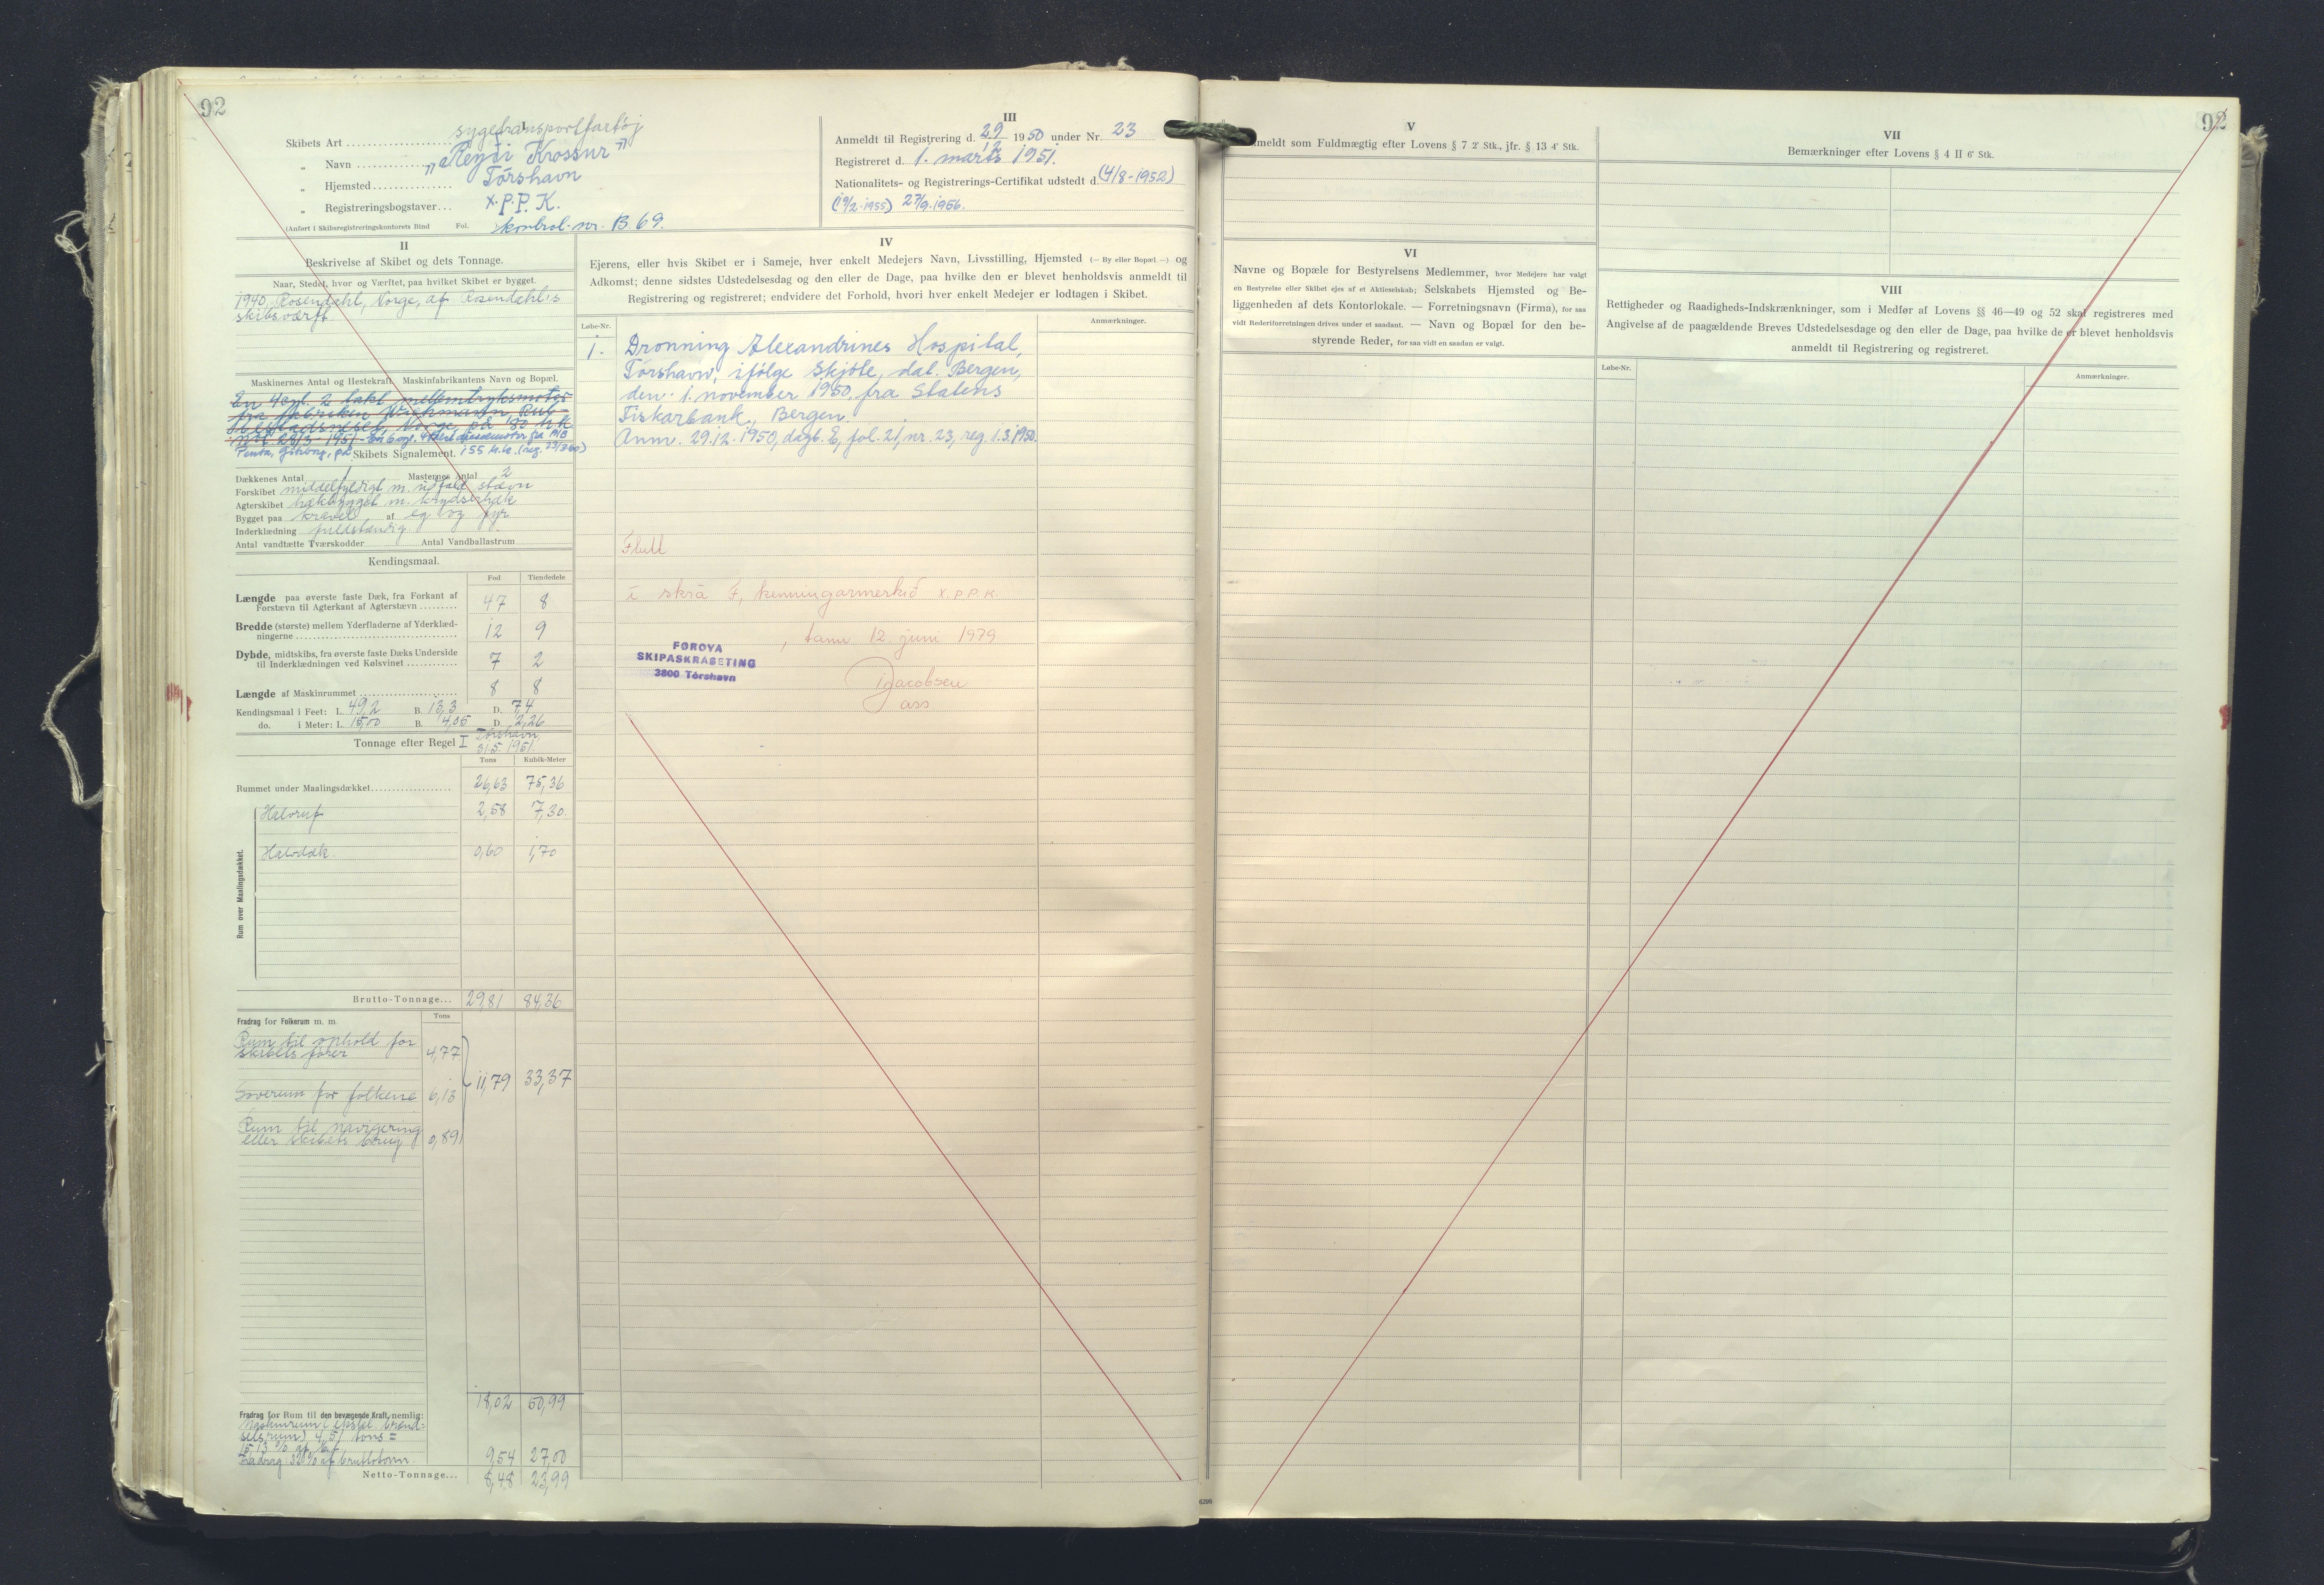 92
I
Skibets Art sygetransportfartøj
„ Navn „Reyði Krossur"
„ Hjemsted Tórshavn
„ Registreringsbogstaver X.P.P.K.
(Anført i Skibsregistreringskontorets Bind Fol. kontrol-nr. B 69.
III
Anmeldt til Registrering d. 29/12 1950 under Nr. 23
Registreret d. 1. marts 1951.
Nationalitets- og Registrerings-Certifikat udstedt d. (4/8-1952)
(19/2-1955) 27/9.1956.
II
Beskrivelse af Skibet og dets Tonnage.
Naar, Stedet, hvor og Værftet, paa hvilket Skibet er bygget.
1940, Rosendahl, Norge, af Rosendahls
skibsværft
Maskinernes Antal og Hestekraft. Maskinfabrikantens Navn og Bopæl.
En 4 cyl. 2 takt mellemtryksmotor
fra fabriken Wichmann, Rub-
bestadneset, Norge, på 80 hk
En 6 cyl. 4 takt dieselmotor fra A/B
Penta, Gøteborg, på 155 h.k. (reg.
Skibets Signalement.
Dækkenes Antal 1 Masternes Antal 2
Forskibet middelfyldigt m. udfald. stævn
Agterskibet hækbygget m. krydserhæk
Bygget paa kravel af eg og fyr
Inderklædning fuldstændig
Antal vandtætte Tværskodder Antal Vandballastrum
Kendingsmaal.
Fod Tiendedele
Længde paa øverste faste Dæk, fra Forkant af
Forstævn til Agterkant af Agterstævn 47 8
Bredde (største) mellem Yderfladerne af Yderklæd-
ningerne 12 9
Dybde, midtskibs, fra øverste faste Dæks Underside
til Inderklædningen ved Kølsvinet 7 2
Længde af Maskinrummet 8 8
Kendingsmaal i Feet: L. 49,2 B. 13,3 D. 7,4
do. i Meter: L. 15,00 B. 4,05 D. 2,26
Tonnage efter Regel I Tórshavn,
31.5.1951.
Tons Kubik-Meter
Rummet under Maalingsdækket 26,63 75,36
Rum over Maalingsdækket.
Halvruf 2,58 7,30
Halvdæk 0,60 1,70
Brutto-Tonnage... 29,81 84,36
Fradrag for Folkerum m. m. Tons
Rum til ophold for
skibets fører 4,77
11,79 33,37
Soverum for folkene 6,13
Rum til navigering
eller skibets brug 0,89
18,02 50,99
Fradrag for Rum til den bevægende Kraft, nemlig:
Maskinrum (ekskl. brænd-
selsrum) 4,51 tons =
15,13 % af btt.
Fradrag 32% af bruttotonn. 9,54 27,00
Netto-Tonnage... 8,48 23,99
IV
Ejerens, eller hvis Skibet er i Sameje, hver enkelt Medejers Navn, Livsstilling, Hjemsted (— By eller Bopæl —) og
Adkomst; denne sidstes Udstedelsesdag og den eller de Dage, paa hvilke den er blevet henholdsvis anmeldt til
Registrering og registreret; endvidere det Forhold, hvori hver enkelt Medejer er lodtagen i Skibet.
Løbe-Nr. Anmærkninger.
1. Dronning Alexandrines Hospital,
Tórshavn, ifølge Skjøte, dat. Bergen,
den 1. november 1950, fra Statens
Fiskarbank, Bergen.
Anm. 29.12.1950, dagb. E, fol. 21, nr. 23, reg. 1.3.1950.
Flutt
í skrá F, kenningarmerkið X.P.P.K
, tann 12. juni 1979
FØROYA
SKIPASKRÁSETING
3800 Tórshavn
Jacobsen
ass
92
V
Anmeldt som Fuldmægtig efter Lovens § 7 2' Stk., jfr. § 13 4' Stk.
VI
Navne og Bopæle for Bestyrelsens Medlemmer, hvor Medejere har valgt
en Bestyrelse eller Skibet ejes af et Aktieselskab; Selskabets Hjemsted og Be-
liggenheden af dets Kontorlokale. — Forretningsnavn (Firma), for saa
vidt Rederiforretningen drives under et saadant. — Navn og Bopæl for den be-
styrende Reder, for saa vidt en saadan er valgt.
VII
Bemærkninger efter Lovens § 4 II 6' Stk.
VIII
Rettigheder og Raadigheds-Indskrænkninger, som i Medfør af Lovens §§ 46—49 og 52 skal registreres med
Angivelse af de paagældende Breves Udstedelsesdage og den eller de Dage, paa hvilke de er blevet henholdsvis
anmeldt til Registrering og registreret.
Løbe-Nr. Anmærkninger.